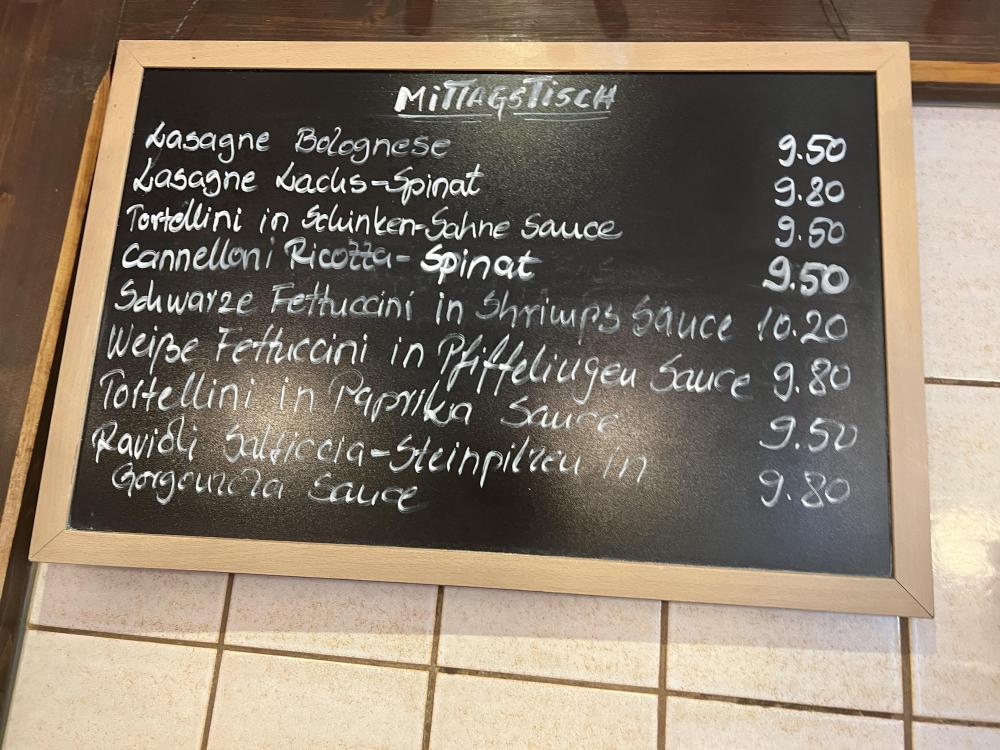 MITTAGSTISCH
Lasagne Bolognese 9.50
Lasagne Lachs-Spinat 9.80
Tortellini in Schinken-Sahne Sauce 9.50
Cannelloni Ricotta-Spinat 9.50
Schwarze Fettuccini in Shrimps Sauce 10.20
Weiße Fettuccini in Pfifferlingen Sauce 9.80
Tortellini in Paprika Sauce 9.50
Ravioli Salsiccia-Steinpilzen in
Gorgonzola Sauce 9.80